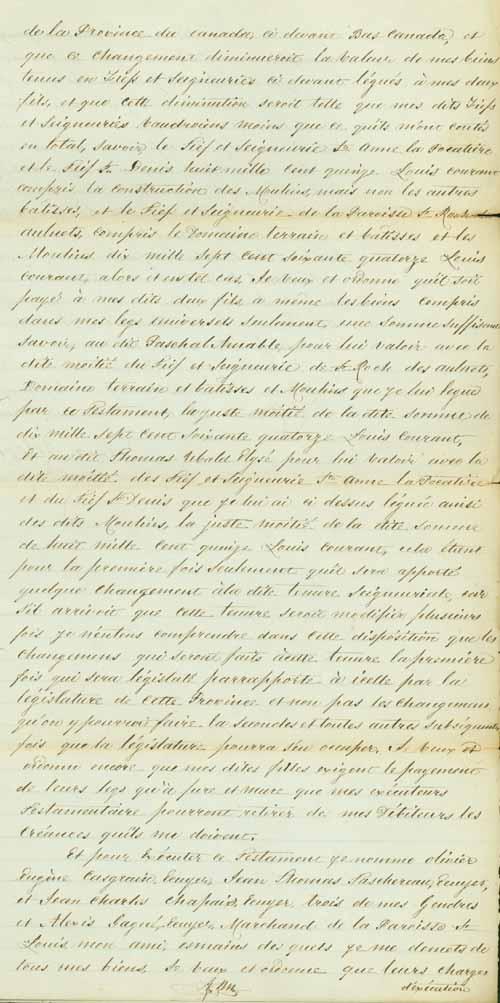 de la Province du Canada, ci devant Bas Canada, et
que ce changement diminueroit la valeur de mes biens
tenus en Fiefs et Seigneuries ci devant légués à mes deux
fils, et que cette diminution seroit telle que mes dits Fiefs
et Seigneuries vaudroient moins que ce qu'ils m'ont coutés
en total, savoir le Fief et Seigneurie Ste Anne la Pocatière
et le Fief St Denis huit mille cent quinze Louis courant
compris la construction des Moulins, mais non les autres
batisses, et le Fief et Seigneurie de la Paroisse St Roch des
aulnets, compris le Domaine terrain et bâtisses et les
Moulins dix mille sept cent soixante quatorze Louis
Courant, alors et en tel cas, Je veux et ordonne qu'il soit
payé à mes dits deux fils a même les biens compris
dans mes legs universels seulement, une somme suffisante
savoir, au dit Paschal Amable, pour lui valoir avec la
dite moitié du Fief et Seigneurie de St Roch des aulnets,
Domaine terrain et batisses et Moulins que je lui legue
par ce Testament, la juste moitié de la dite somme de
dix mille sept cent soixante quatorze Louis Courant,
Et au dit Thomas Ubald Elysé pour lui valoir avec la
dite moitié des Fief et Seigneurie Ste Anne la Pocatière
et du Fief St Denis que je lui ai ci dessus léguée ainsi
des dits Moulins, la juste moitié de la dite somme
de huit mille cent quinze Louis courant, cela étant
pour la première fois seulement qu'il sera apporté
quelque changement à la dite tenure Seigneuriale, car
s'il arrivoit que cette tenure seroit modifiée plusieurs
fois je n'entens comprendre dans cette disposition que les
changemens qui seront faits à cette tenure la première
fois qui sera législaté par rapporte à icelle par la
législature de cette Province et non pas les changemens
qu'on y pourroit faire la seconde et toutes autres subséquentes
fois que la législature pourra s'en occuper, Je veux et
ordonne encore que mes dites filles exigent le payement
de leurs legs qu'à fure et mure que mes exécuteurs
Testamentaire pourront retirer de mes Débiteurs les
Créances qu'ils me doivent.
Et pour Exécuter ce Testament je nomme olivier
Eugène Casgrain, Ecuyer, Jean Thomas Taschereau, Ecuyer,
et Jean Charles Chapais, Ecuyer, trois de mes Gendres
et Alexis Gagné, Ecuyer, Marchand de la Paroisse St
Louis mon ami, ès mains des quels je me demets de
tous mes biens, Je veux et ordonne que leurs charges
d'exécution